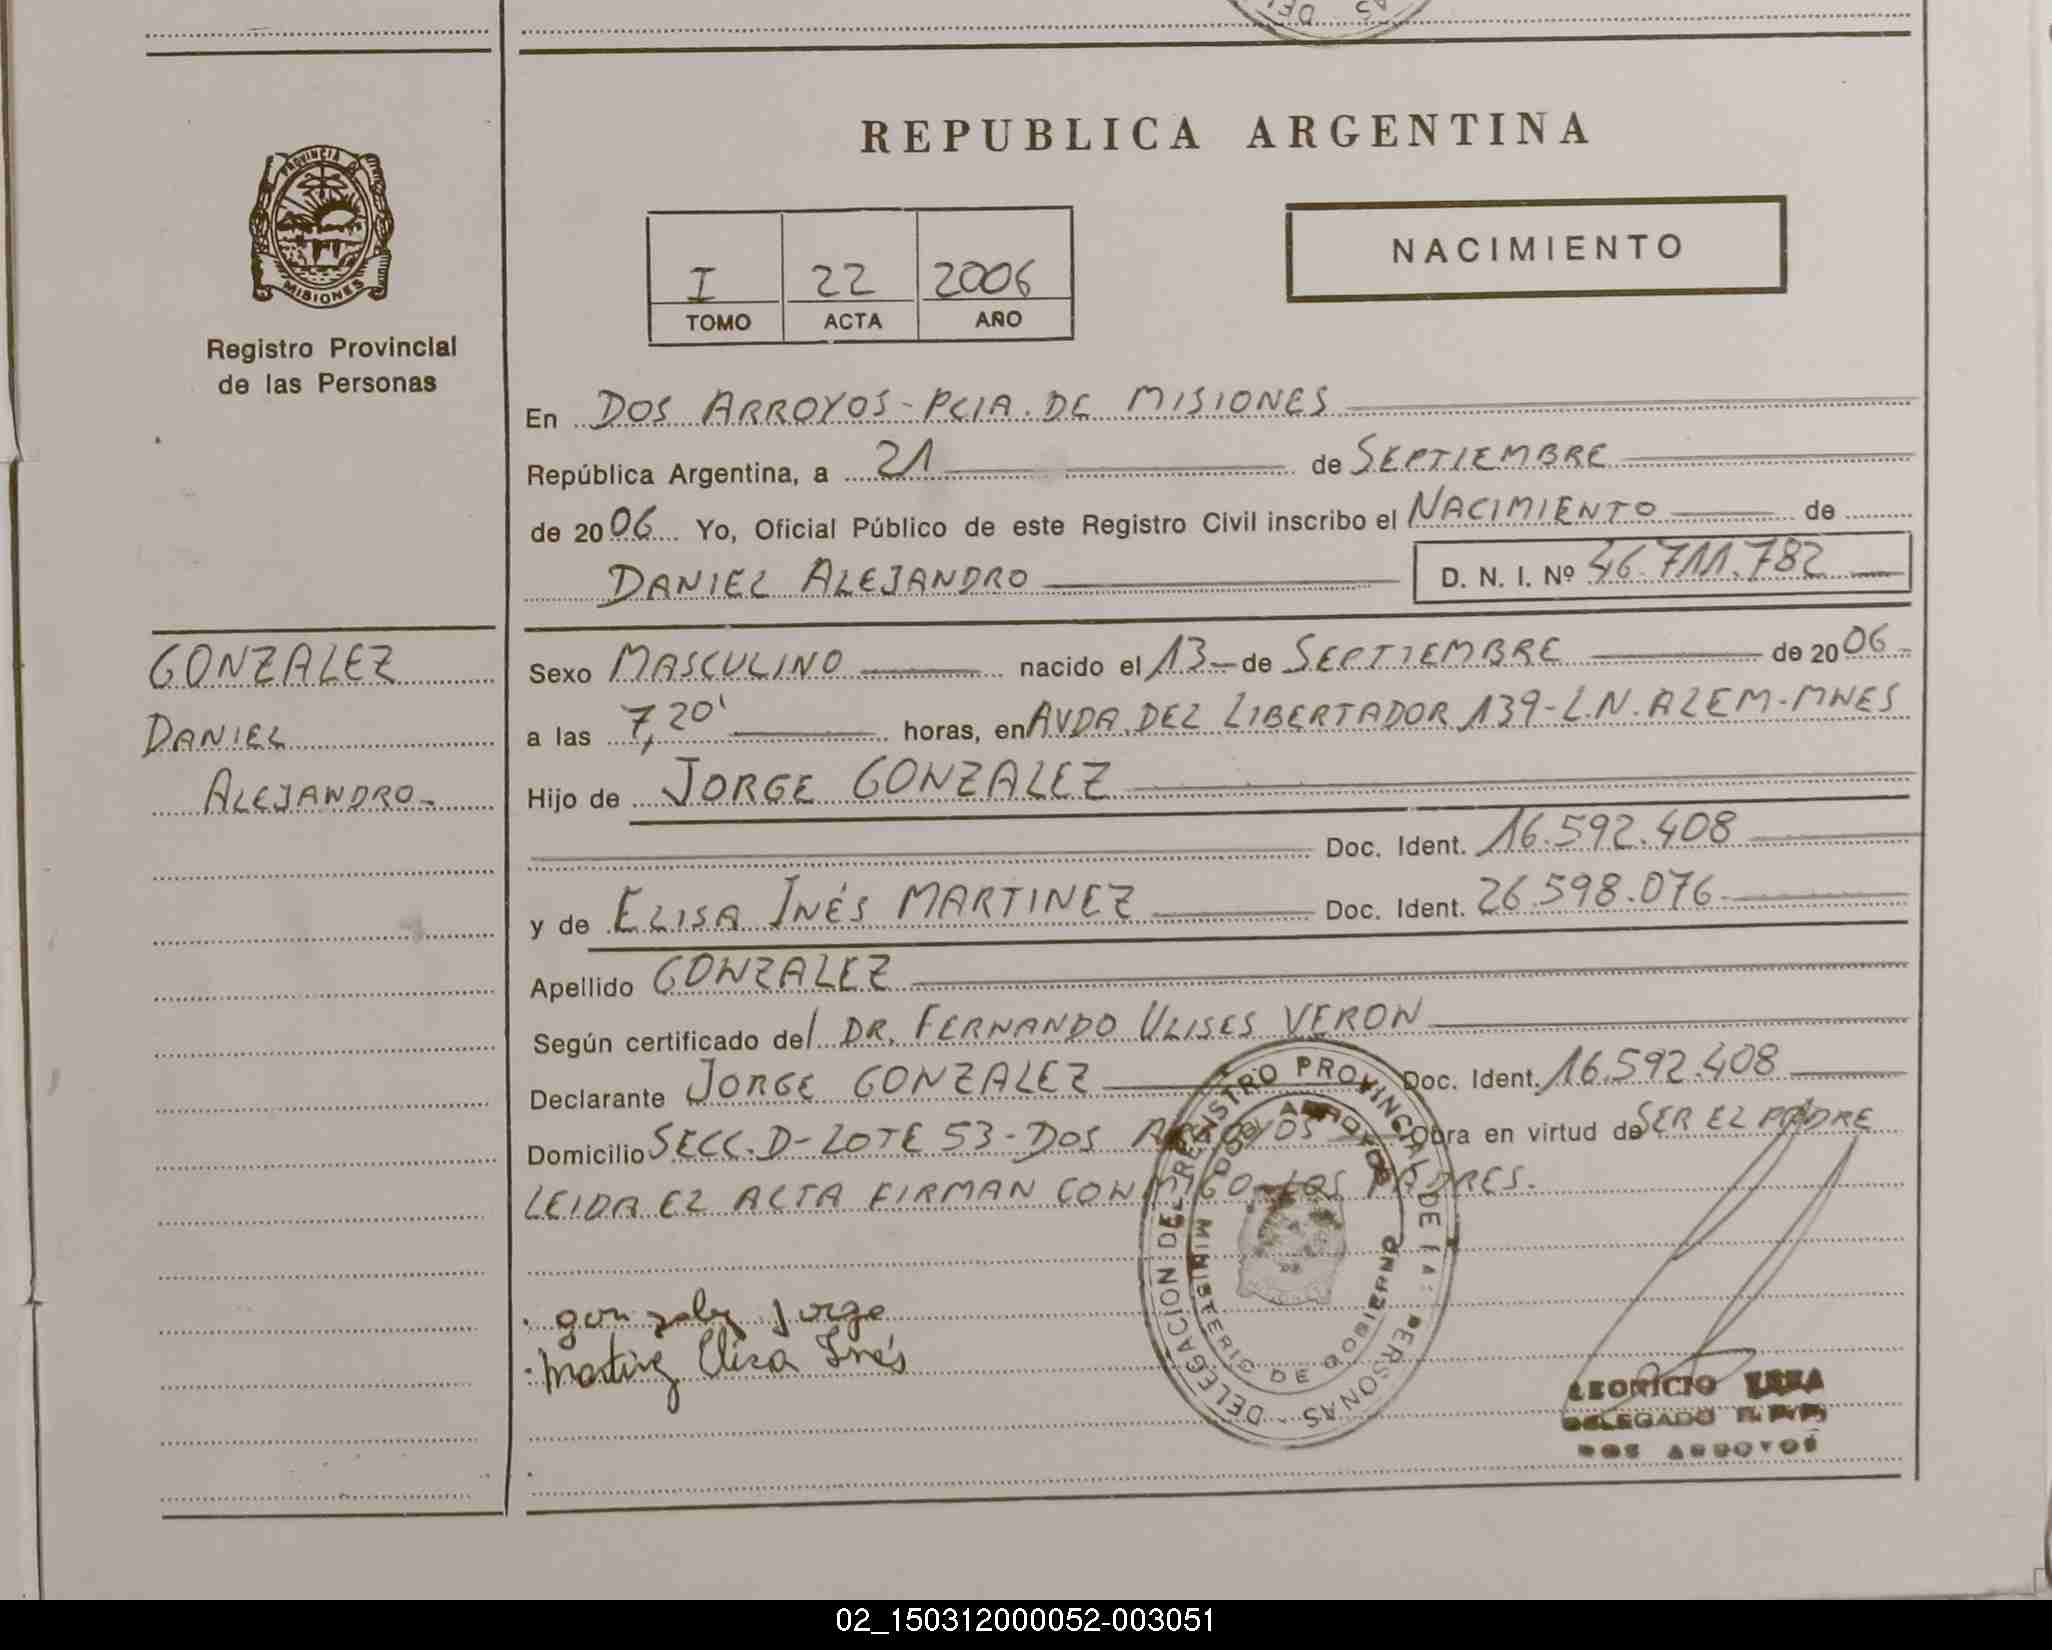 REPUBLICA ARGENTINA
PROVINCIA DE
MISIONES
Registro Provincial
de las Personas
I 22 2006
TOMO ACTA AÑO
NACIMIENTO
En DOS ARROYOS - PCIA. DE MISIONES
República Argentina, a 21 de SEPTIEMBRE
de 2006 Yo, Oficial Público de este Registro Civil inscribo el NACIMIENTO de
DANIEL ALEJANDRO D. N. I. Nº 46.711.782
GONZALEZ
DANIEL
ALEJANDRO-
Sexo MASCULINO nacido el 13 - de SEPTIEMBRE de 2006 -
a las 7,20' horas, en AVDA. DEL LIBERTADOR 139 - L.N. ALEM - MNES
Hijo de JORGE GONZALEZ
Doc. Ident. 16.592.408
y de ELISA INÉS MARTINEZ Doc. Ident. 26.598.076
Apellido GONZALEZ
Según certificado del DR. FERNANDO ULISES VERON
Declarante JORGE GONZALEZ Doc. Ident. 16.592.408
Domicilio SECC. D - LOTE 53 - DOS ARROYOS Obra en virtud de SER EL PADRE
LEIDA EL ACTA FIRMAN CONMIGO LOS PADRES.
DELEGACION DEL REGISTRO PROVINCIAL DE LAS PERSONAS -
DOS ARROYOS
MINISTERIO DE GOBIERNO
gonzalez Jorge
Martinez Elisa Inés
LEONICIO
DELEGADO R.P.P.
DOS ARROYOS
02_150312000052-003051